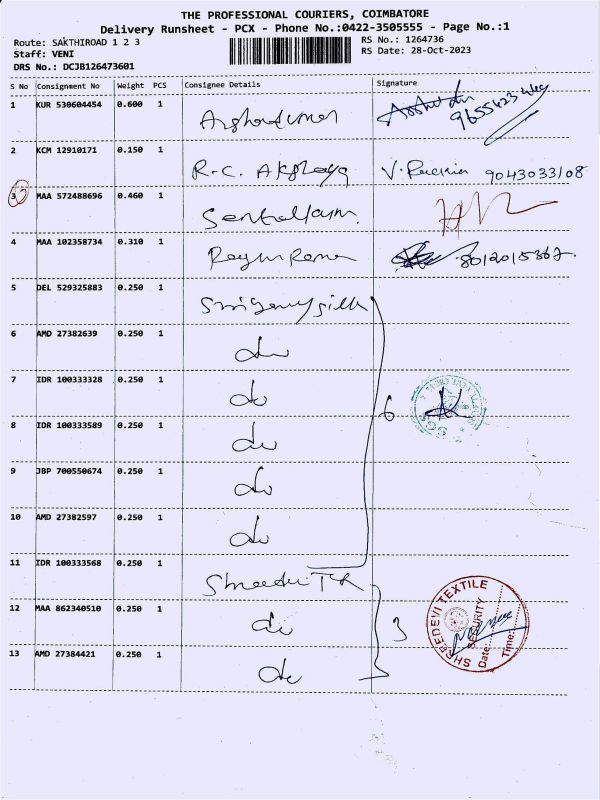 THE PROFESSIONAL COURIERS, COIMBATORE
Delivery Runsheet - PCX - Phone No.:0422-3505555 - Page No.:1
Route: SAKTHIROAD 1 2 3
RS No.: 1264736
Staff: VENI
RS Date: 28-Oct-2023
DRS No.: DCJB126473601
S No Consignment No Weight PCS Consignee Details Signature
1 KUR 530604454 0.600 1
2 KCM 12910171 0.150 1 R.C. Akshaya 9043033108
3 MAA 572488696 0.460 1
4 MAA 102358734 0.310 1 8012015362
5 DEL 529325883 0.250 1
6 AMD 27382639 0.250 1 do
7 IDR 100333328 0.250 1 do 6
8 IDR 100333589 0.250 1 do
9 JBP 700550674 0.250 1 do
10 AMD 27382597 0.250 1 do
11 IDR 100333568 0.250 1 Shreedevi Tex
12 MAA 862340510 0.250 1 do 3
SHREEDEVI TEXTILE
SECURITY
Date:
Time:
13 AMD 27384421 0.250 1 do